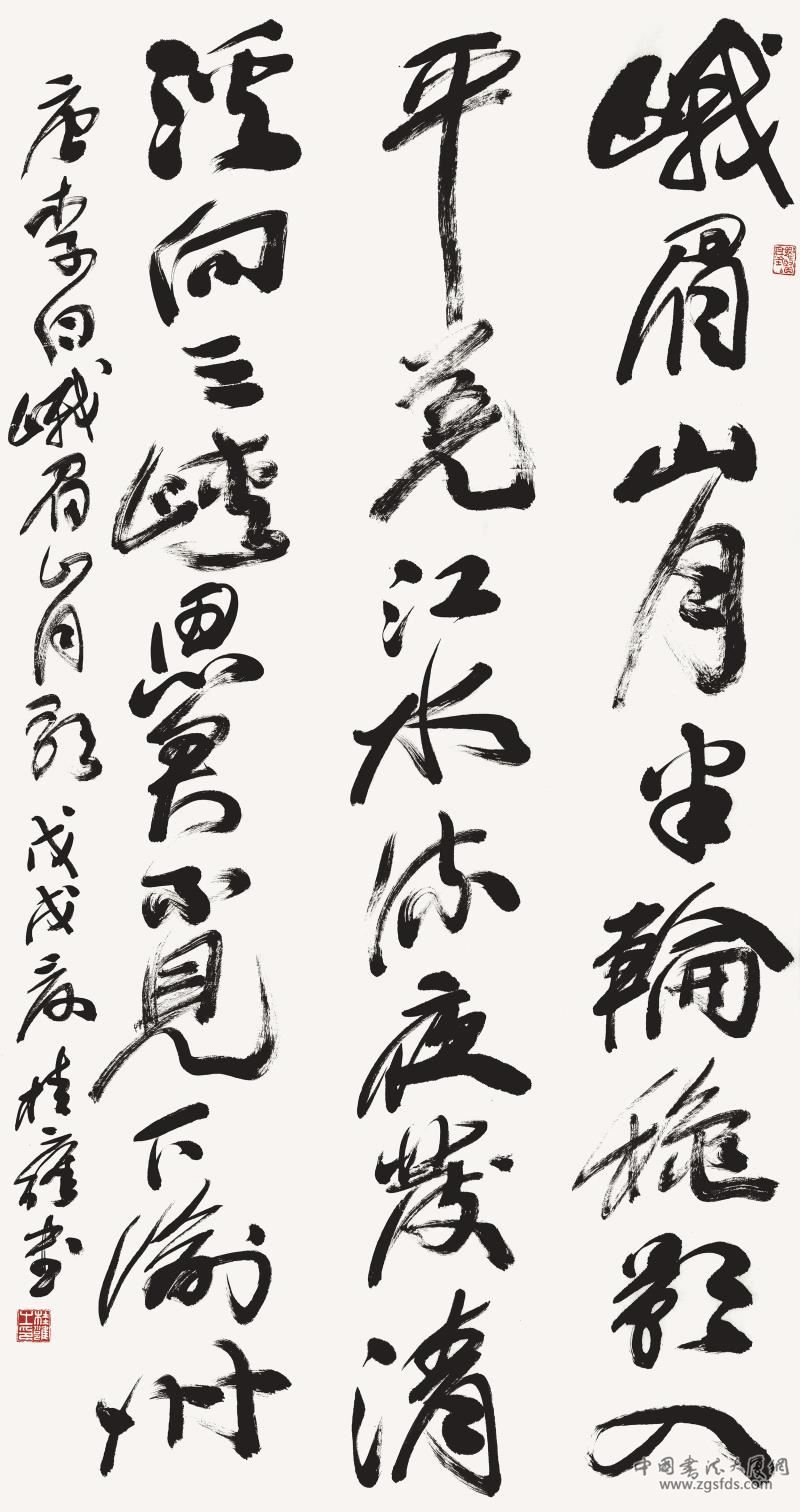 峨眉山月半輪穐影入
平羌江水流夜發清
溪向三峽思君不見下渝州
唐李白峨眉山月歌 戊戌 桂雍書
中國書法大展網
www.zgsfds.com